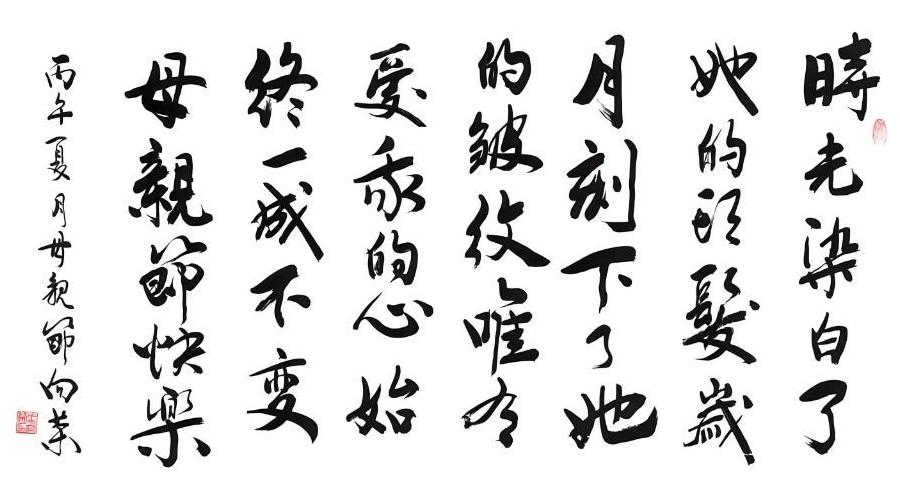 時光染白了
她的頭髮歲
月刻下了她
的皺纹唯有
爱我的心始
终一成不变
母親節快樂
丙午夏月母親節向